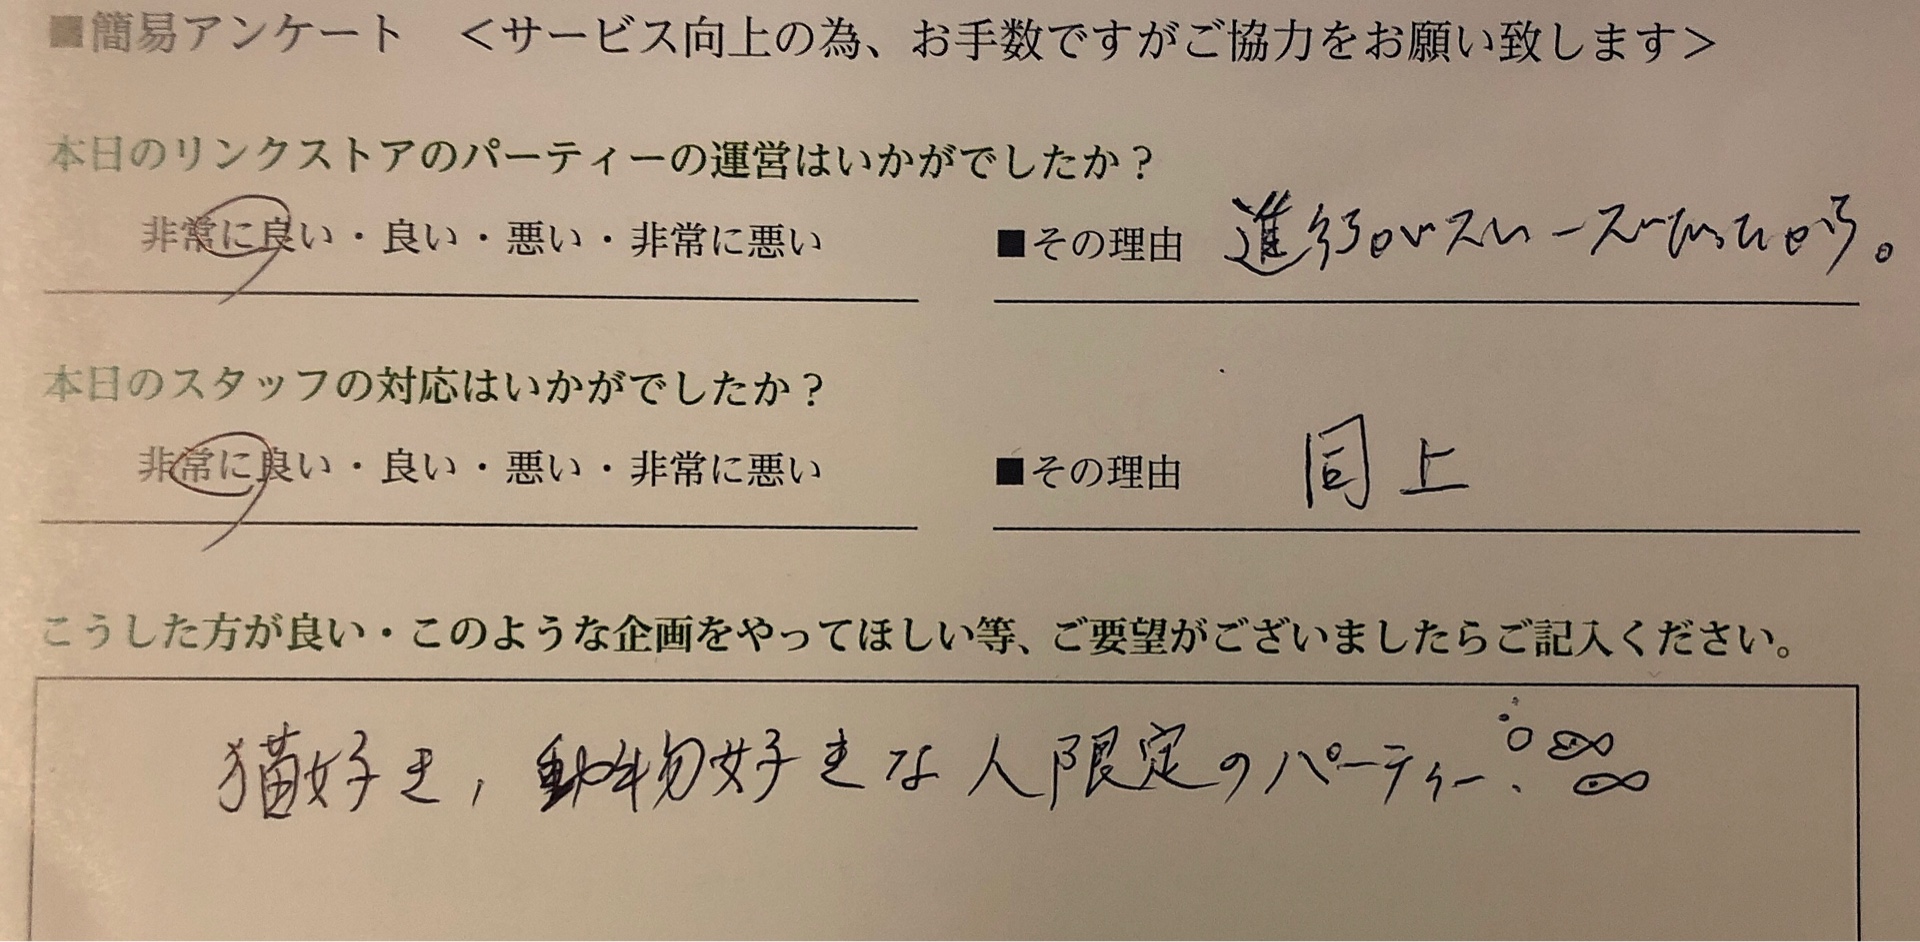 ■簡易アンケート　＜サービス向上の為、お手数ですがご協力をお願い致します＞
本日のリンクストアのパーティーの運営はいかがでしたか？
非常に良い・良い・悪い・非常に悪い　■その理由　進行がスムーズだったから。
本日のスタッフの対応はいかがでしたか？
非常に良い・良い・悪い・非常に悪い　■その理由　同上
こうした方が良い・このような企画をやってほしい等、ご要望がございましたらご記入ください。
猫好き，動物好きな人限定のパーティー.